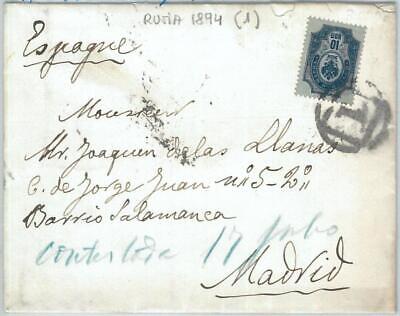 RUSIA 1894 (1)
Espagne
10 КОП
1
Monsieur
Mr. Joaquen de las Llanas
C. de Jorge Juan nº 5-2º
Barrio Salamanca
Contestada 17 Julio
Madrid